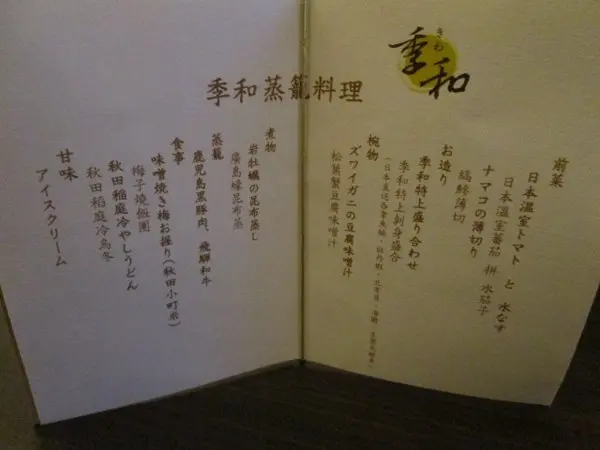 きわ
季和
季和蒸籠料理
前菜
日本温室トマト と 水なす
日本溫室蕃茄 拼 水茄子
ナマコの薄切り
縞鯵薄切
お造り
季和特上盛り合わせ
季和特上刺身盛合
椀物
ズワイガニの豆腐味噌汁
松葉蟹豆腐味噌汁
煮物
岩牡蠣の昆布蒸し
廣島蠔昆布蒸
蒸籠
鹿児島黒豚肉、飛騨和牛
食事
味噌焼き梅お握り(秋田小町米)
梅子燒飯團
秋田稲庭冷やしうどん
秋田稻庭冷烏冬
甘味
アイスクリーム